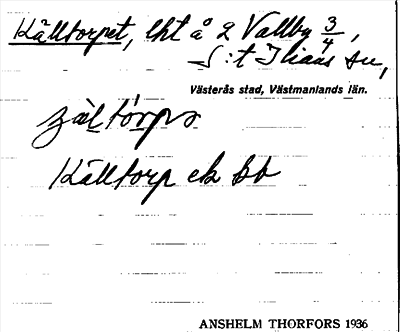 Källtorpet, lht å 2 Vallby 3/4,
S:t Ilians sn,
Västerås stad, Västmanlands län.
Källtorp ek bb
ANSHELM THORFORS 1936